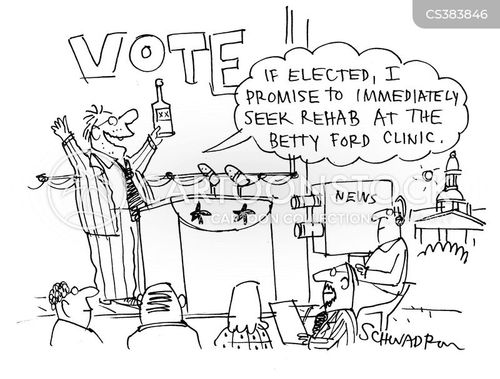 CS383846
VOTE
XX
IF ELECTED, I
PROMISE TO IMMEDIATELY
SEEK REHAB AT THE
BETTY FORD CLINIC.
NEWS
CARTOONSTOCK
CARTOON COLLECTIONS
SCHWADRON